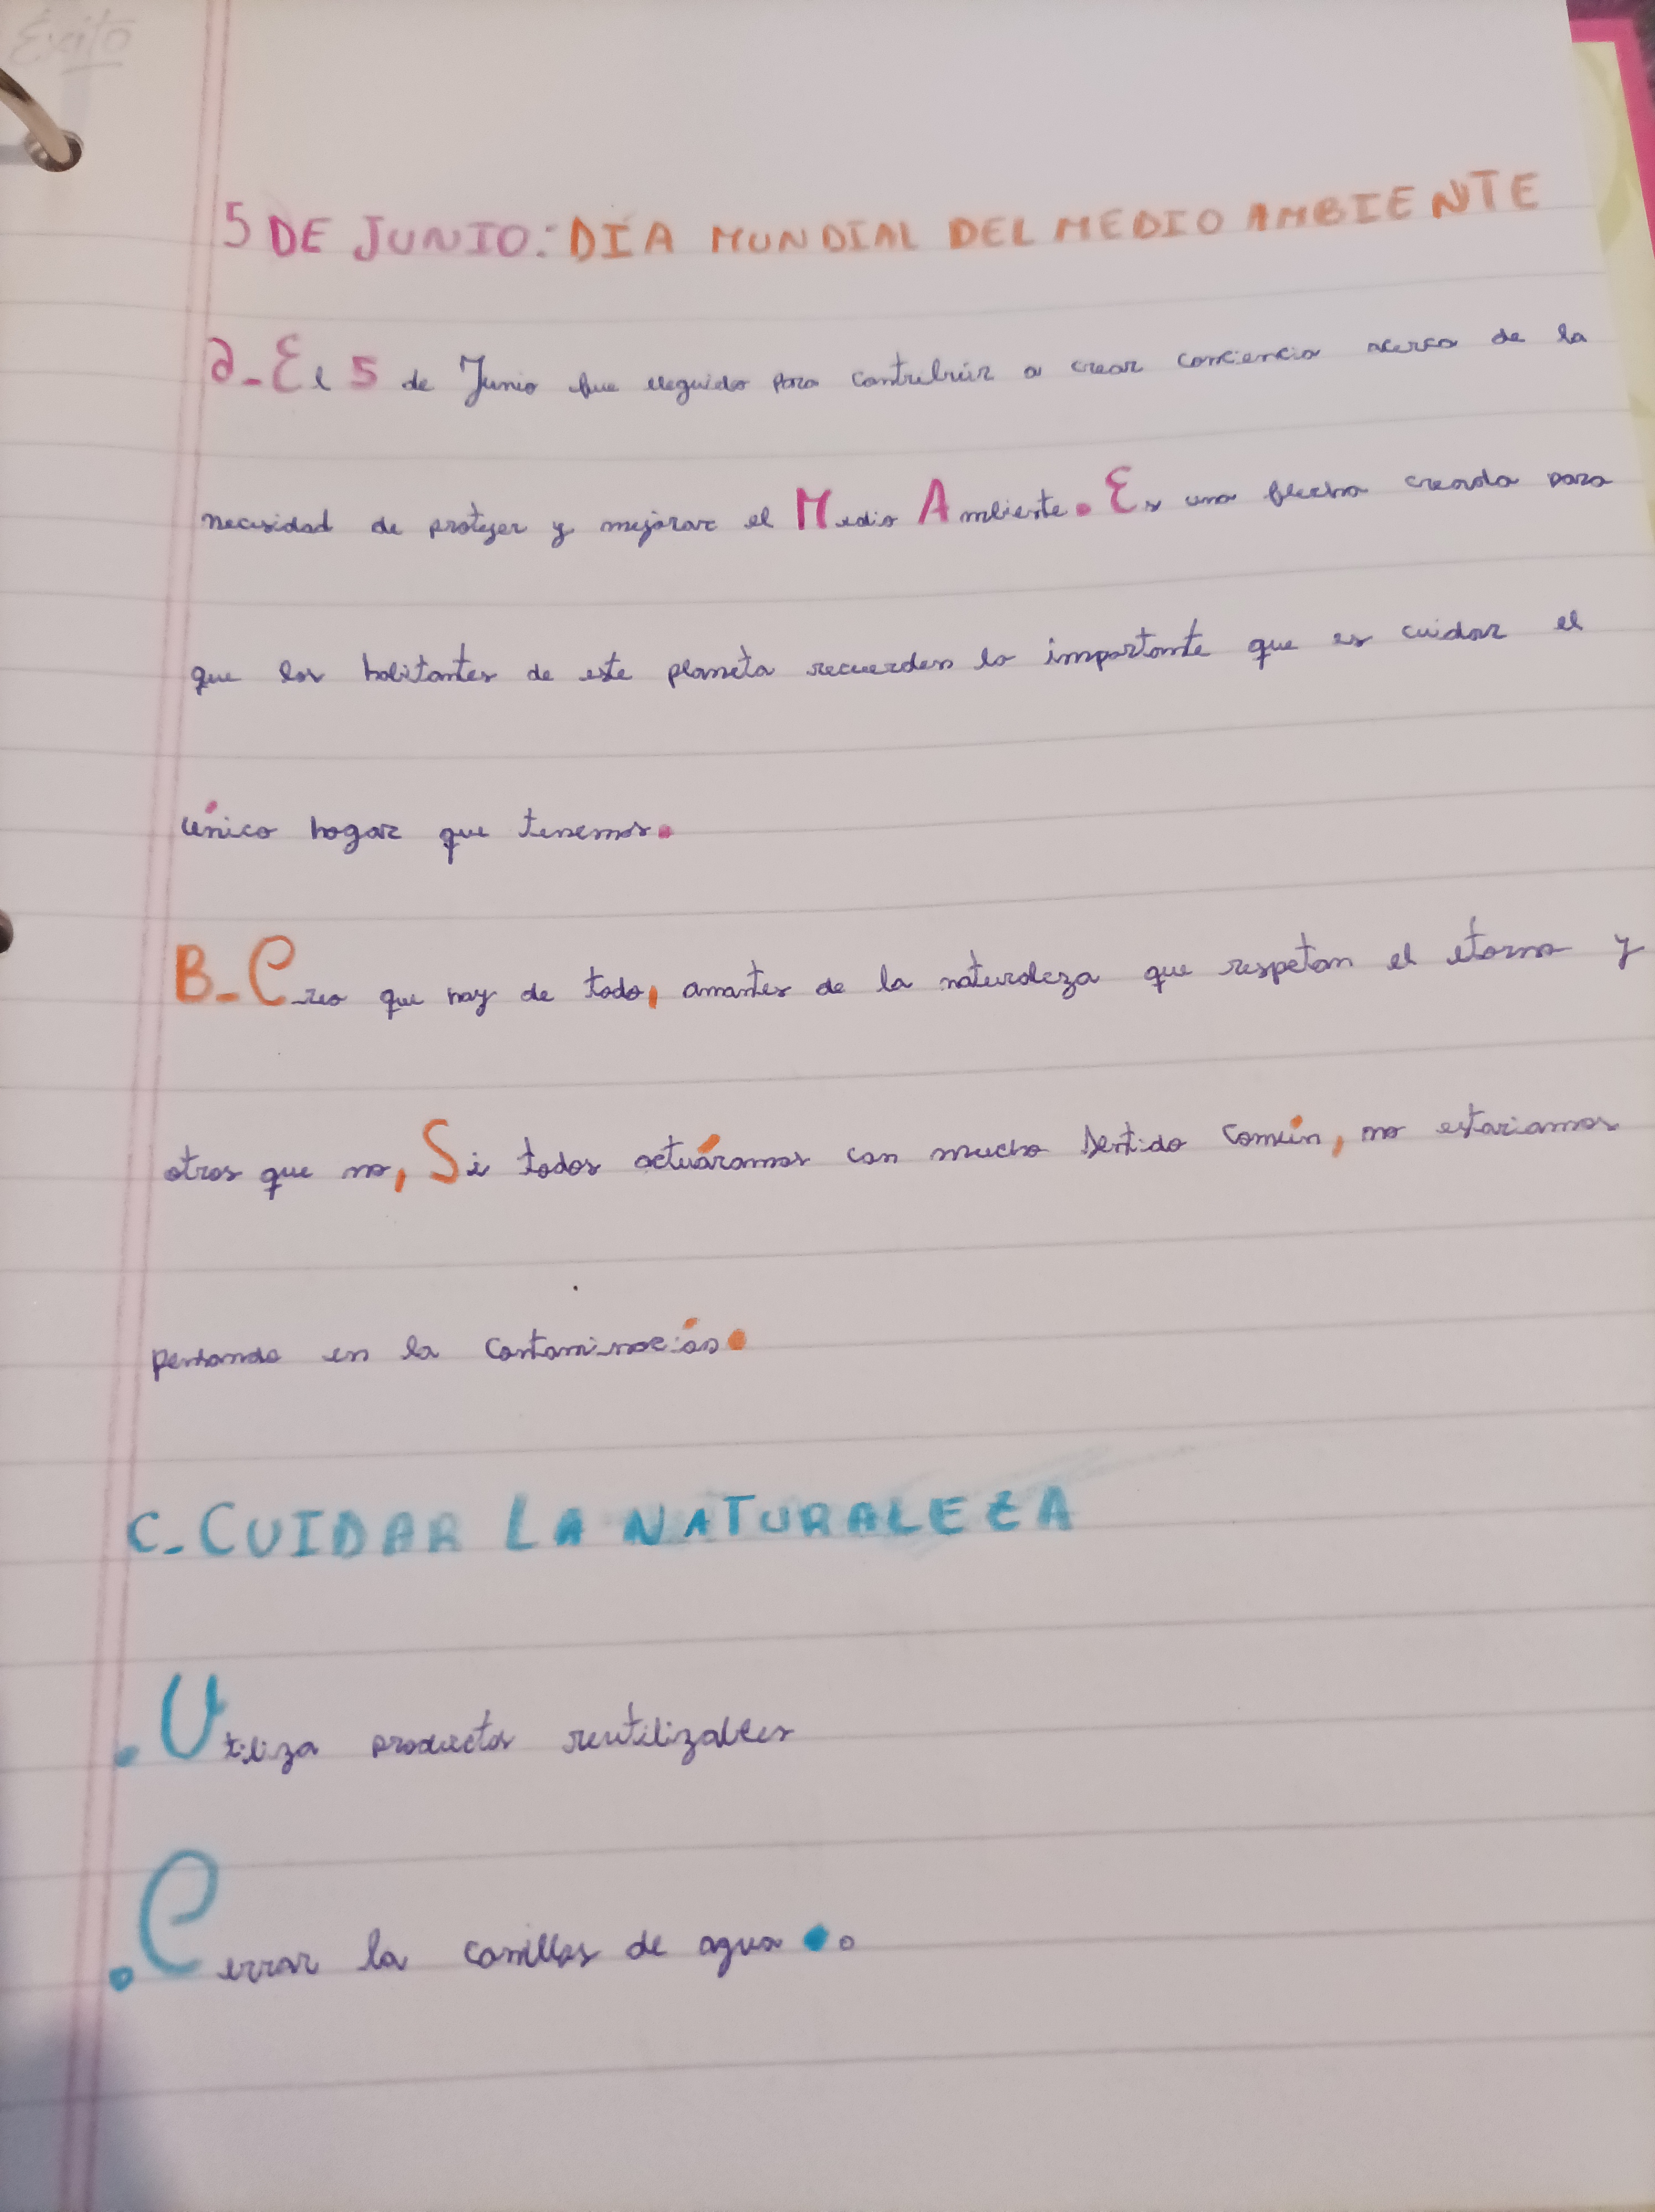 Éxito
5 DE JUNIO: DÍA MUNDIAL DEL MEDIO AMBIENTE
a_ El 5 de Junio fue elegido para contribuir a crear conciencia acerca de la
necesidad de proteger y mejorar el Medio Ambiente. Es una fecha creada para
que los habitantes de este planeta recuerden lo importante que es cuidar el
único hogar que tenemos.
B_ Creo que hay de todo, amantes de la naturaleza que respetan el etorno y
otros que no, Si todos actuáramos con mucho sentido común, no estariamos
pensando en la contaminación.
C_ CUIDAR LA NATURALEZA
. Utiliza productos reutilizables
. Cerrar la canillas de agua .